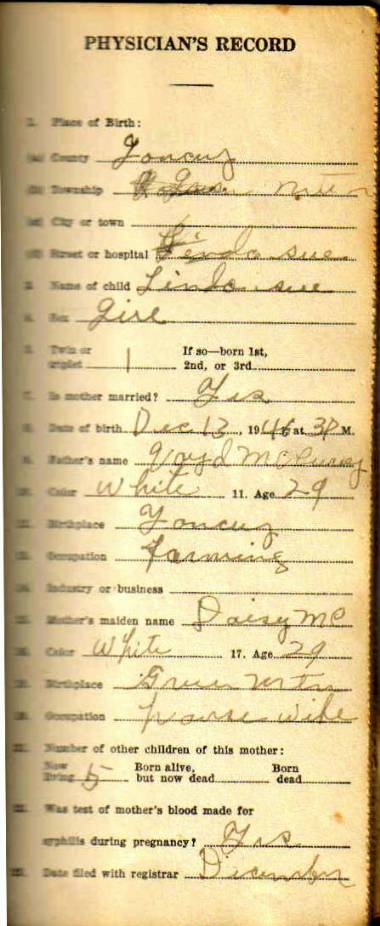 PHYSICIAN'S RECORD
1. Place of Birth:
(a) County Yancey
(b) Township
(c) City or town
(d) Street or hospital Linda sue
2. Name of child Linda sue
4. Sex Girl
5. Twin or triplet 1 If so—born 1st, 2nd, or 3rd
7. Is mother married? Yes
8. Date of birth Dec 13, 194 at 3P M.
9. Father's name
10. Color White 11. Age 29
12. Birthplace Yancey
13. Occupation Farming
14. Industry or business
15. Mother's maiden name Daisy MC
16. Color White 17. Age 29
Birthplace Green
Occupation house wife
21. Number of other children of this mother:
Now living 5 Born alive, but now dead Born dead
22. Was test of mother's blood made for
syphilis during pregnancy? Yes
23. Date filed with registrar December